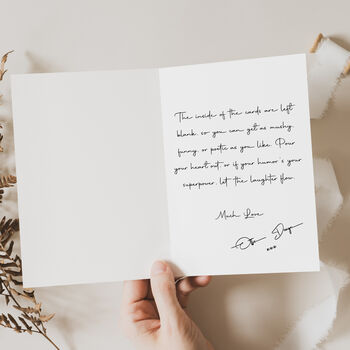 The inside of the cards are left
blank, so you can get as mushy,
funny, or poetic as you like. Pour
your heart out, or if your humor's your
superpower, let the laughter flow.
Much Love